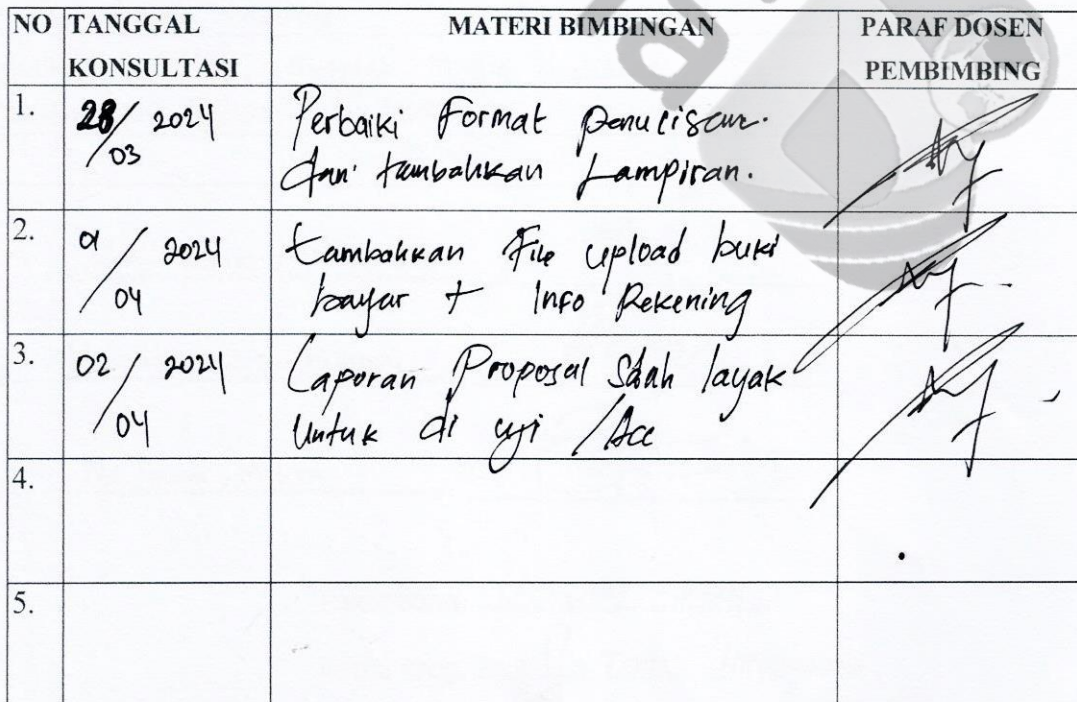 NO TANGGAL KONSULTASI MATERI BIMBINGAN PARAF DOSEN PEMBIMBING
1. 28/03 2024 Perbaiki Format Penulisan.
dan tambahkan Lampiran.
2. 01/04 2024 tambahkan File upload bukti
bayar + Info Rekening
3. 02/04 2024 Laporan Proposal Sdah layak
Untuk di uji /Acc
4.
5.